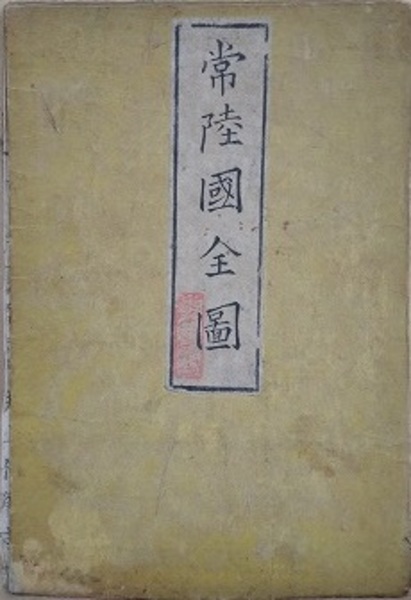 常陸國全圖